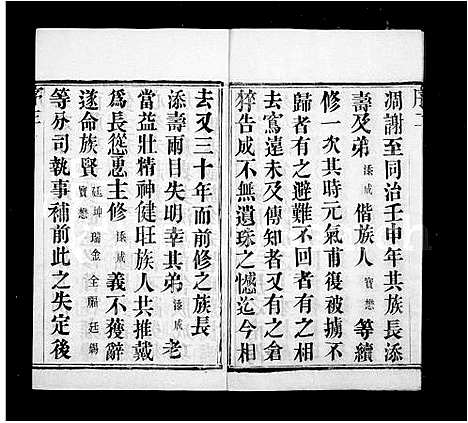 序二
凋謝至同治壬申年其族長添
壽及弟添咸偕族人寶懋等續
修一次其時元氣甫復被擄不
歸者有之避難不回者有之相
去寫遠未及傳知者又有之倉
猝告成不無遺珠之憾迄今相
去又三十年而前修之族長
添壽雨目失明幸其弟添咸老
當益壯精神健旺族人共推戴
為長慫恿主修添咸義不獲辭
遂命族賢廷坤寶懋瑞金全廷錫
等分司執事補前此之失定後
序三